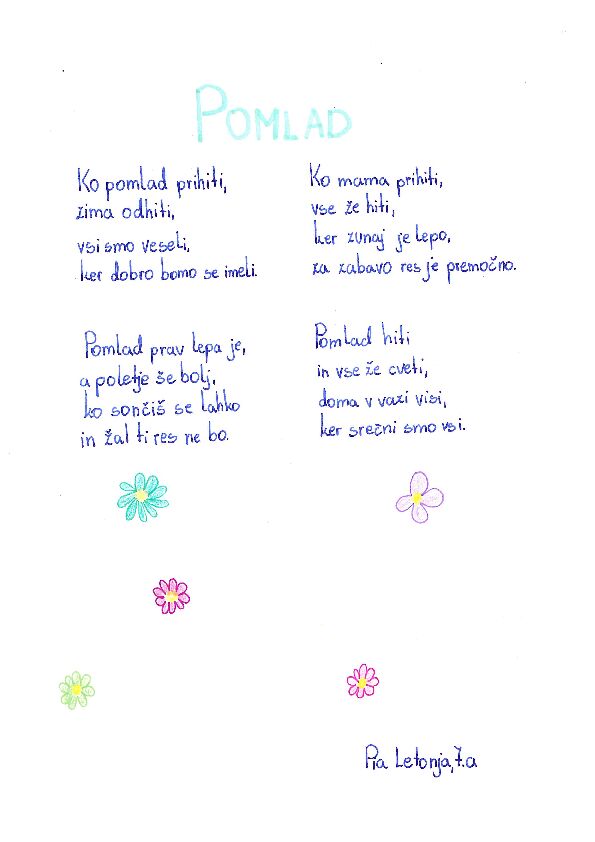 POMLAD
Ko pomlad prihiti,
zima odhiti,
vsi smo veseli,
ker dobro bomo se imeli.
Pomlad prav lepa je,
a poletje še bolj,
ko sončiš se lahko
in žal ti res ne bo.
Ko mama prihiti,
vse že hiti,
ker zunaj je lepo,
za zabavo res je premočno.
Pomlad hiti
in vse že cveti,
doma v vazi visi,
ker srečni smo vsi.
Pia Letonja, 7.a